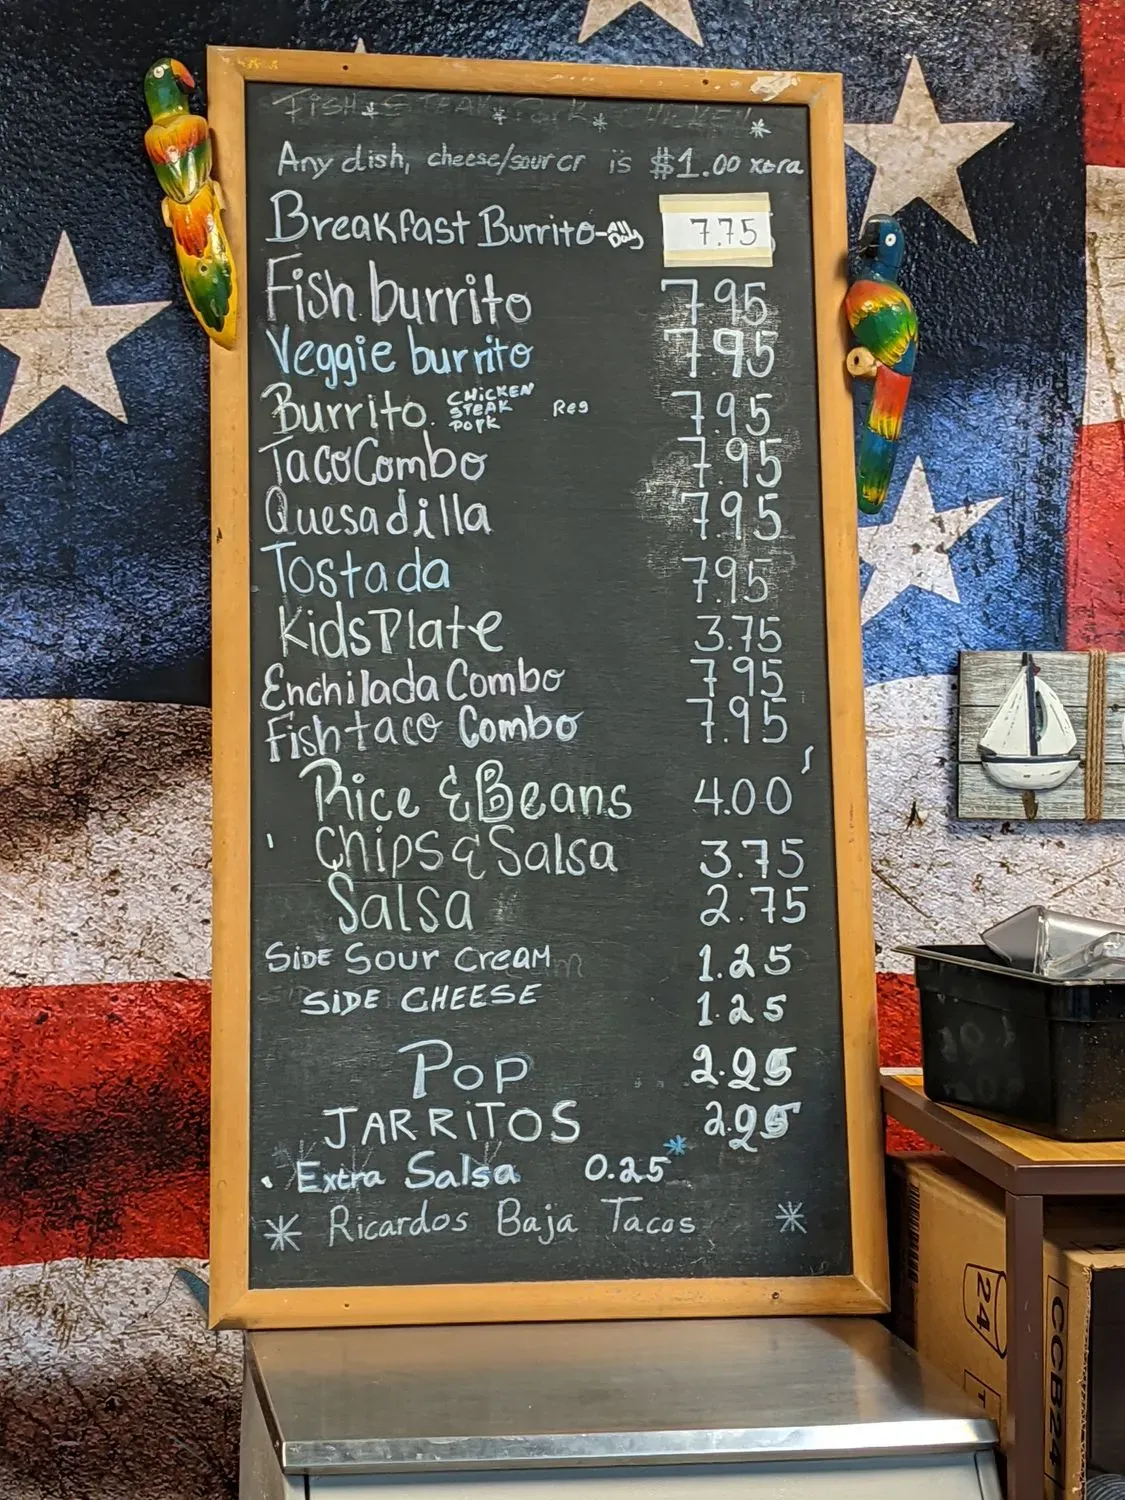 FISH STEAK PORK CHICKEN
Any dish, cheese/sour cr is $1.00 xtra
Breakfast Burrito-All Day 7.75
Fish burrito 7.95
Veggie burrito 7.95
Burrito. CHICKEN STEAK PORK Reg 7.95
Taco Combo 7.95
Quesadilla 7.95
Tostada 7.95
Kids Plate 3.75
Enchilada Combo 7.95
Fish taco Combo 7.95
Rice & Beans 4.00
Chips & Salsa 3.75
Salsa 2.75
SIDE Sour cream 1.25
SIDE CHEESE 1.25
POP 2.95
JARRITOS 2.95
Extra Salsa 0.25*
* Ricardos Baja Tacos *
24
CCB24